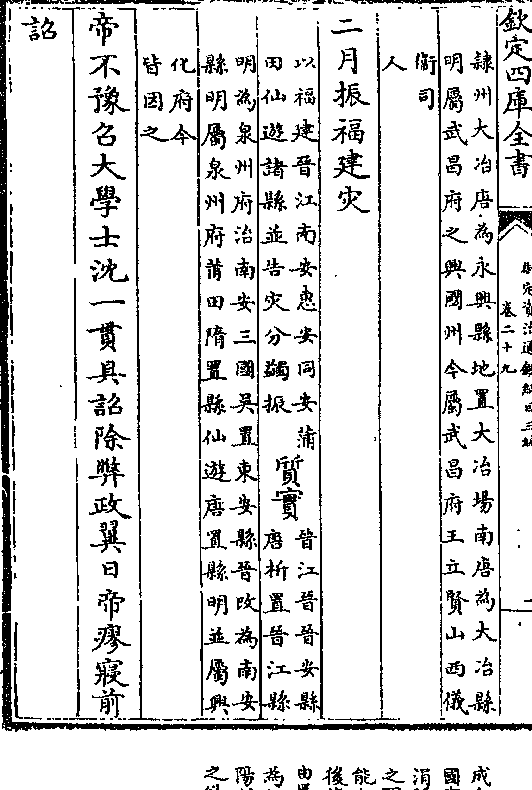 欽定四庫全書
卷二十九
隸州大冶唐為永興縣地置大冶場南唐為大冶縣
明屬武昌府之興國州今屬武昌府王立賢山西儀
衞司
人
二月振福建灾
以福建晉江南安惠安同安蒲
田仙遊諸縣並告灾分蠲振
質實
晉江晉晉安縣
唐析置晉江縣
明為泉州府治南安三國吳置東安縣晉改為南安
縣明屬泉州府莆田隋置縣仙遊唐置縣明並屬興
化府今
皆因之
帝不豫召大學士沈一貫具詔除弊政翼日帝瘳寢前
詔